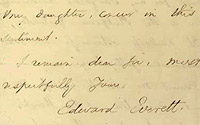 Daughter, concur in this
sentiment.
I remain, dear Sir, most
respectfully Yours,
Edward Everett.